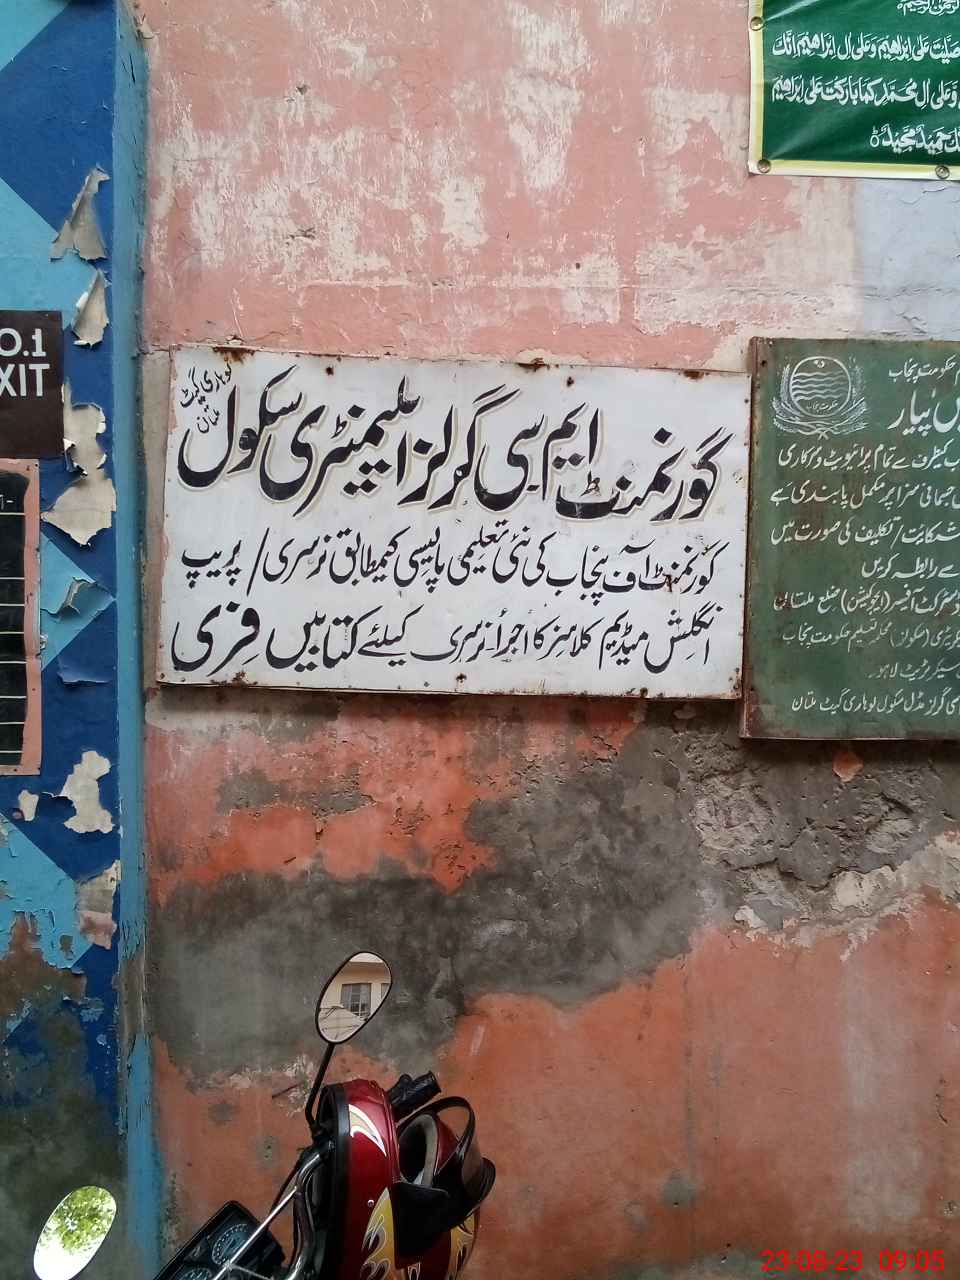 الرحمن الرحیم
صلیت علی ابراھیم وعلی ال ابراھیم انک
وعلی ال محمد کما بارکت علی ابراھیم
حمید مجید
O.1
XIT
لوہاری گیٹ
ملتان
گورنمنٹ ایم سی گرلز ایلیمنٹری سکول
گورنمنٹ آف پنجاب کی نئی تعلیمی پالیسی کیمطابق نرسری / پریپ
انگلش میڈیم کلاسز کا اجرأ نرسری کیلئے کتابیں فری
حکومت پنجاب
پیار
کیطرف سے تمام پرائیویٹ و سرکاری
جسمانی سزا پر مکمل پابندی ہے
شکایت / تکلیف کی صورت میں
سے رابطہ کریں
ڈسٹرکٹ آفیسر (ایجوکیشن) ضلع ملتان
(سکولز) محکمہ تعلیم حکومت پنجاب
سیکرٹریٹ لاہور
سی گرلز مڈل سکول لوہاری گیٹ ملتان
23-08-23 09:05